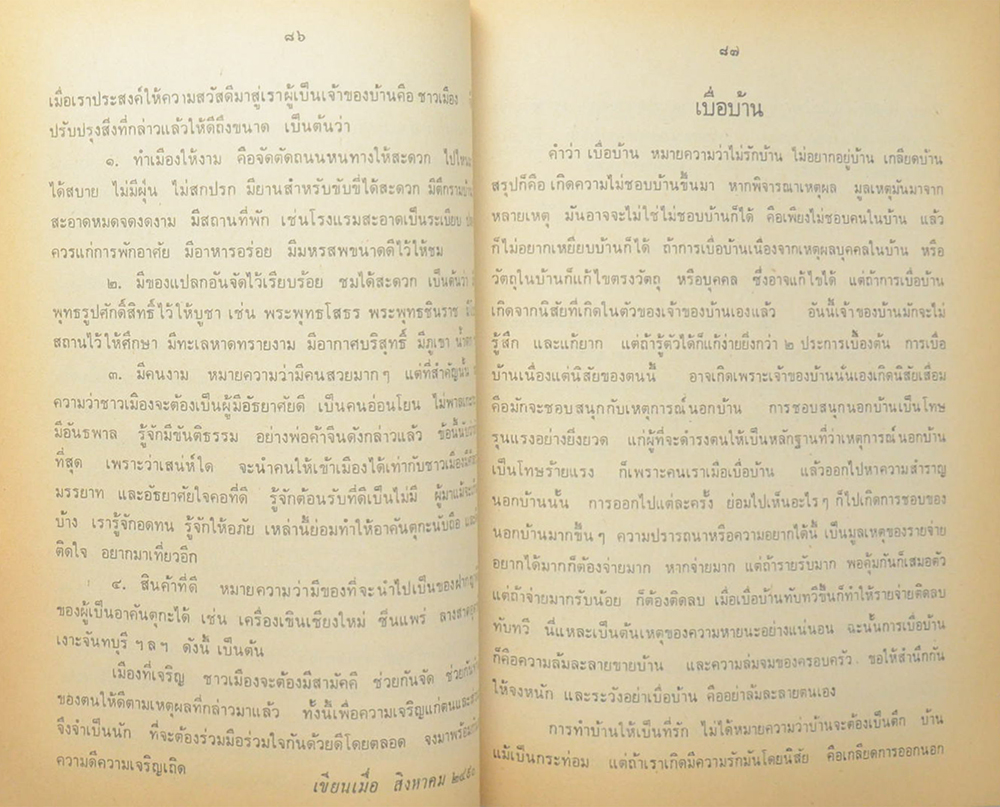 ๘๖
เมื่อเราประสงค์ให้ความสวัสดีมาสู่เราผู้เป็นเจ้าของบ้านคือ ชาวเมือง
ปรับปรุงสิ่งที่กล่าวแล้วให้ดีถึงขนาด เป็นต้นว่า
๑. ทำเมืองให้งาม คือจัดตัดถนนหนทางให้สะดวก
ได้สบาย ไม่มีฝุ่น ไม่สกปรก มียานสำหรับขับขี่ได้สะดวก
สะอาดหมดจดงดงาม มีสถานที่พัก เช่นโรงแรมสะอาดเป็นระเบียบ
ควรแก่การพักอาศัย มีอาหารอร่อย มีมหรสพขนาดดีไว้ให้ชม
๒. มีของแปลกอันจัดไว้เรียบร้อย ชมได้สะดวก เป็นต้นว่า
พุทธรูปศักดิ์สิทธิ์ไว้ให้บูชา เช่น พระพุทธโสธร พระพุทธชินราช
สถานไว้ให้ศึกษา มีทะเลหาดทรายงาม มีอากาศบริสุทธิ์ มีภูเขา
๓. มีคนงาม หมายความว่ามีคนสวยมากๆ แต่ที่สำคัญนั้น
ความว่าชาวเมืองจะต้องเป็นผู้มีอัธยาศัยดี เป็นคนอ่อนโยน
มีอันธพาล รู้จักมีขันติธรรม อย่างพ่อค้าจีนดังกล่าวแล้ว
ที่สุด เพราะว่าเสน่ห์ใด จะนำคนให้เข้าเมืองได้เท่ากับชาวเมือง
มรรยาท และอัธยาศัยใจคอที่ดี รู้จักต้อนรับที่ดีเป็นไม่มี
บ้าง เรารู้จักอดทน รู้จักให้อภัย เหล่านี้ย่อมทำให้อาคันตุกะนับถือ
ติดใจ อยากมาเที่ยวอีก
๔. สินค้าที่ดี หมายความว่ามีของที่จะนำไปเป็นของฝาก
ของผู้เป็นอาคันตุกะได้ เช่น เครื่องเขินเชียงใหม่ ซิ่นแพร่
เงาะจันทบุรี ฯลฯ ดังนี้ เป็นต้น
เมืองที่เจริญ ชาวเมืองจะต้องมีสามัคคี ช่วยกันจัด
ของตนให้ดีตามเหตุผลที่กล่าวมาแล้ว ทั้งนี้เพื่อความเจริญแก่ตนและ
จึงจำเป็นนัก ที่จะต้องร่วมมือร่วมใจกันด้วยดีโดยตลอด
ความดีความเจริญเถิด
เขียนเมื่อ สิงหาคม
๘๗
เบื่อบ้าน
คำว่า เบื่อบ้าน หมายความว่าไม่รักบ้าน ไม่อยากอยู่บ้าน เกลียดบ้าน
สรุปก็คือ เกิดความไม่ชอบบ้านขึ้นมา หากพิจารณาเหตุผล มูลเหตุมันมาจาก
หลายเหตุ มันอาจจะไม่ใช่ไม่ชอบบ้านก็ได้ คือเพียงไม่ชอบคนในบ้าน แล้ว
ก็ไม่อยากเหยียบบ้านก็ได้ ถ้าการเบื่อบ้านเนื่องจากเหตุผลบุคคลในบ้าน หรือ
วัตถุในบ้านก็แก้ไขตรงวัตถุ หรือบุคคล ซึ่งอาจแก้ไขได้ แต่ถ้าการเบื่อบ้าน
เกิดจากนิสัยที่เกิดในตัวของเจ้าของบ้านเองแล้ว อันนี้เจ้าของบ้านมักจะไม่
รู้สึก และแก้ยาก แต่ถ้ารู้ตัวได้ก็แก้ง่ายยิ่งกว่า ๒ ประการเบื้องต้น การเบื่อ
บ้านเนื่องแต่นิสัยของตนนี้ อาจเกิดเพราะเจ้าของบ้านนั่นเองเกิดนิสัยเสื่อม
คือมักจะชอบสนุกกับเหตุการณ์นอกบ้าน การชอบสนุกนอกบ้านเป็นโทษ
รุนแรงอย่างยิ่งยวด แก่ผู้ที่จะดำรงตนให้เป็นหลักฐานที่ว่าเหตุการณ์นอกบ้าน
เป็นโทษร้ายแรง ก็เพราะคนเราเมื่อเบื่อบ้าน แล้วออกไปหาความสำราญ
นอกบ้านนั้น การออกไปแต่ละครั้ง ย่อมไปเห็นอะไรๆ ก็ไปเกิดการชอบของ
นอกบ้านมากขึ้นๆ ความปรารถนาหรือความอยากได้นี้ เป็นมูลเหตุของรายจ่าย
อยากได้มากก็ต้องจ่ายมาก หากจ่ายมาก แต่ถ้ารายรับมาก พอคุ้มกันก็เสมอตัว
แต่ถ้าจ่ายมากรับน้อย ก็ต้องติดลบ เมื่อเบื่อบ้านทับทวีขึ้นก็ทำให้รายจ่ายติดลบ
ทับทวี นี่แหละเป็นต้นเหตุของความหายนะอย่างแน่นอน ฉะนั้นการเบื่อบ้าน
ก็คือความล้มละลายขายบ้าน และความล่มจมของครอบครัว ขอให้สำนึกกัน
ให้จงหนัก และระวังอย่าเบื่อบ้าน คืออย่าล้มละลายตนเอง
การทำบ้านให้เป็นที่รัก ไม่ได้หมายความว่าบ้านจะต้องเป็นตึก บ้าน
แม้เป็นกระท่อม แต่ถ้าเราเกิดมีความรักมันโดยนิสัย คือเกลียดการออกนอก